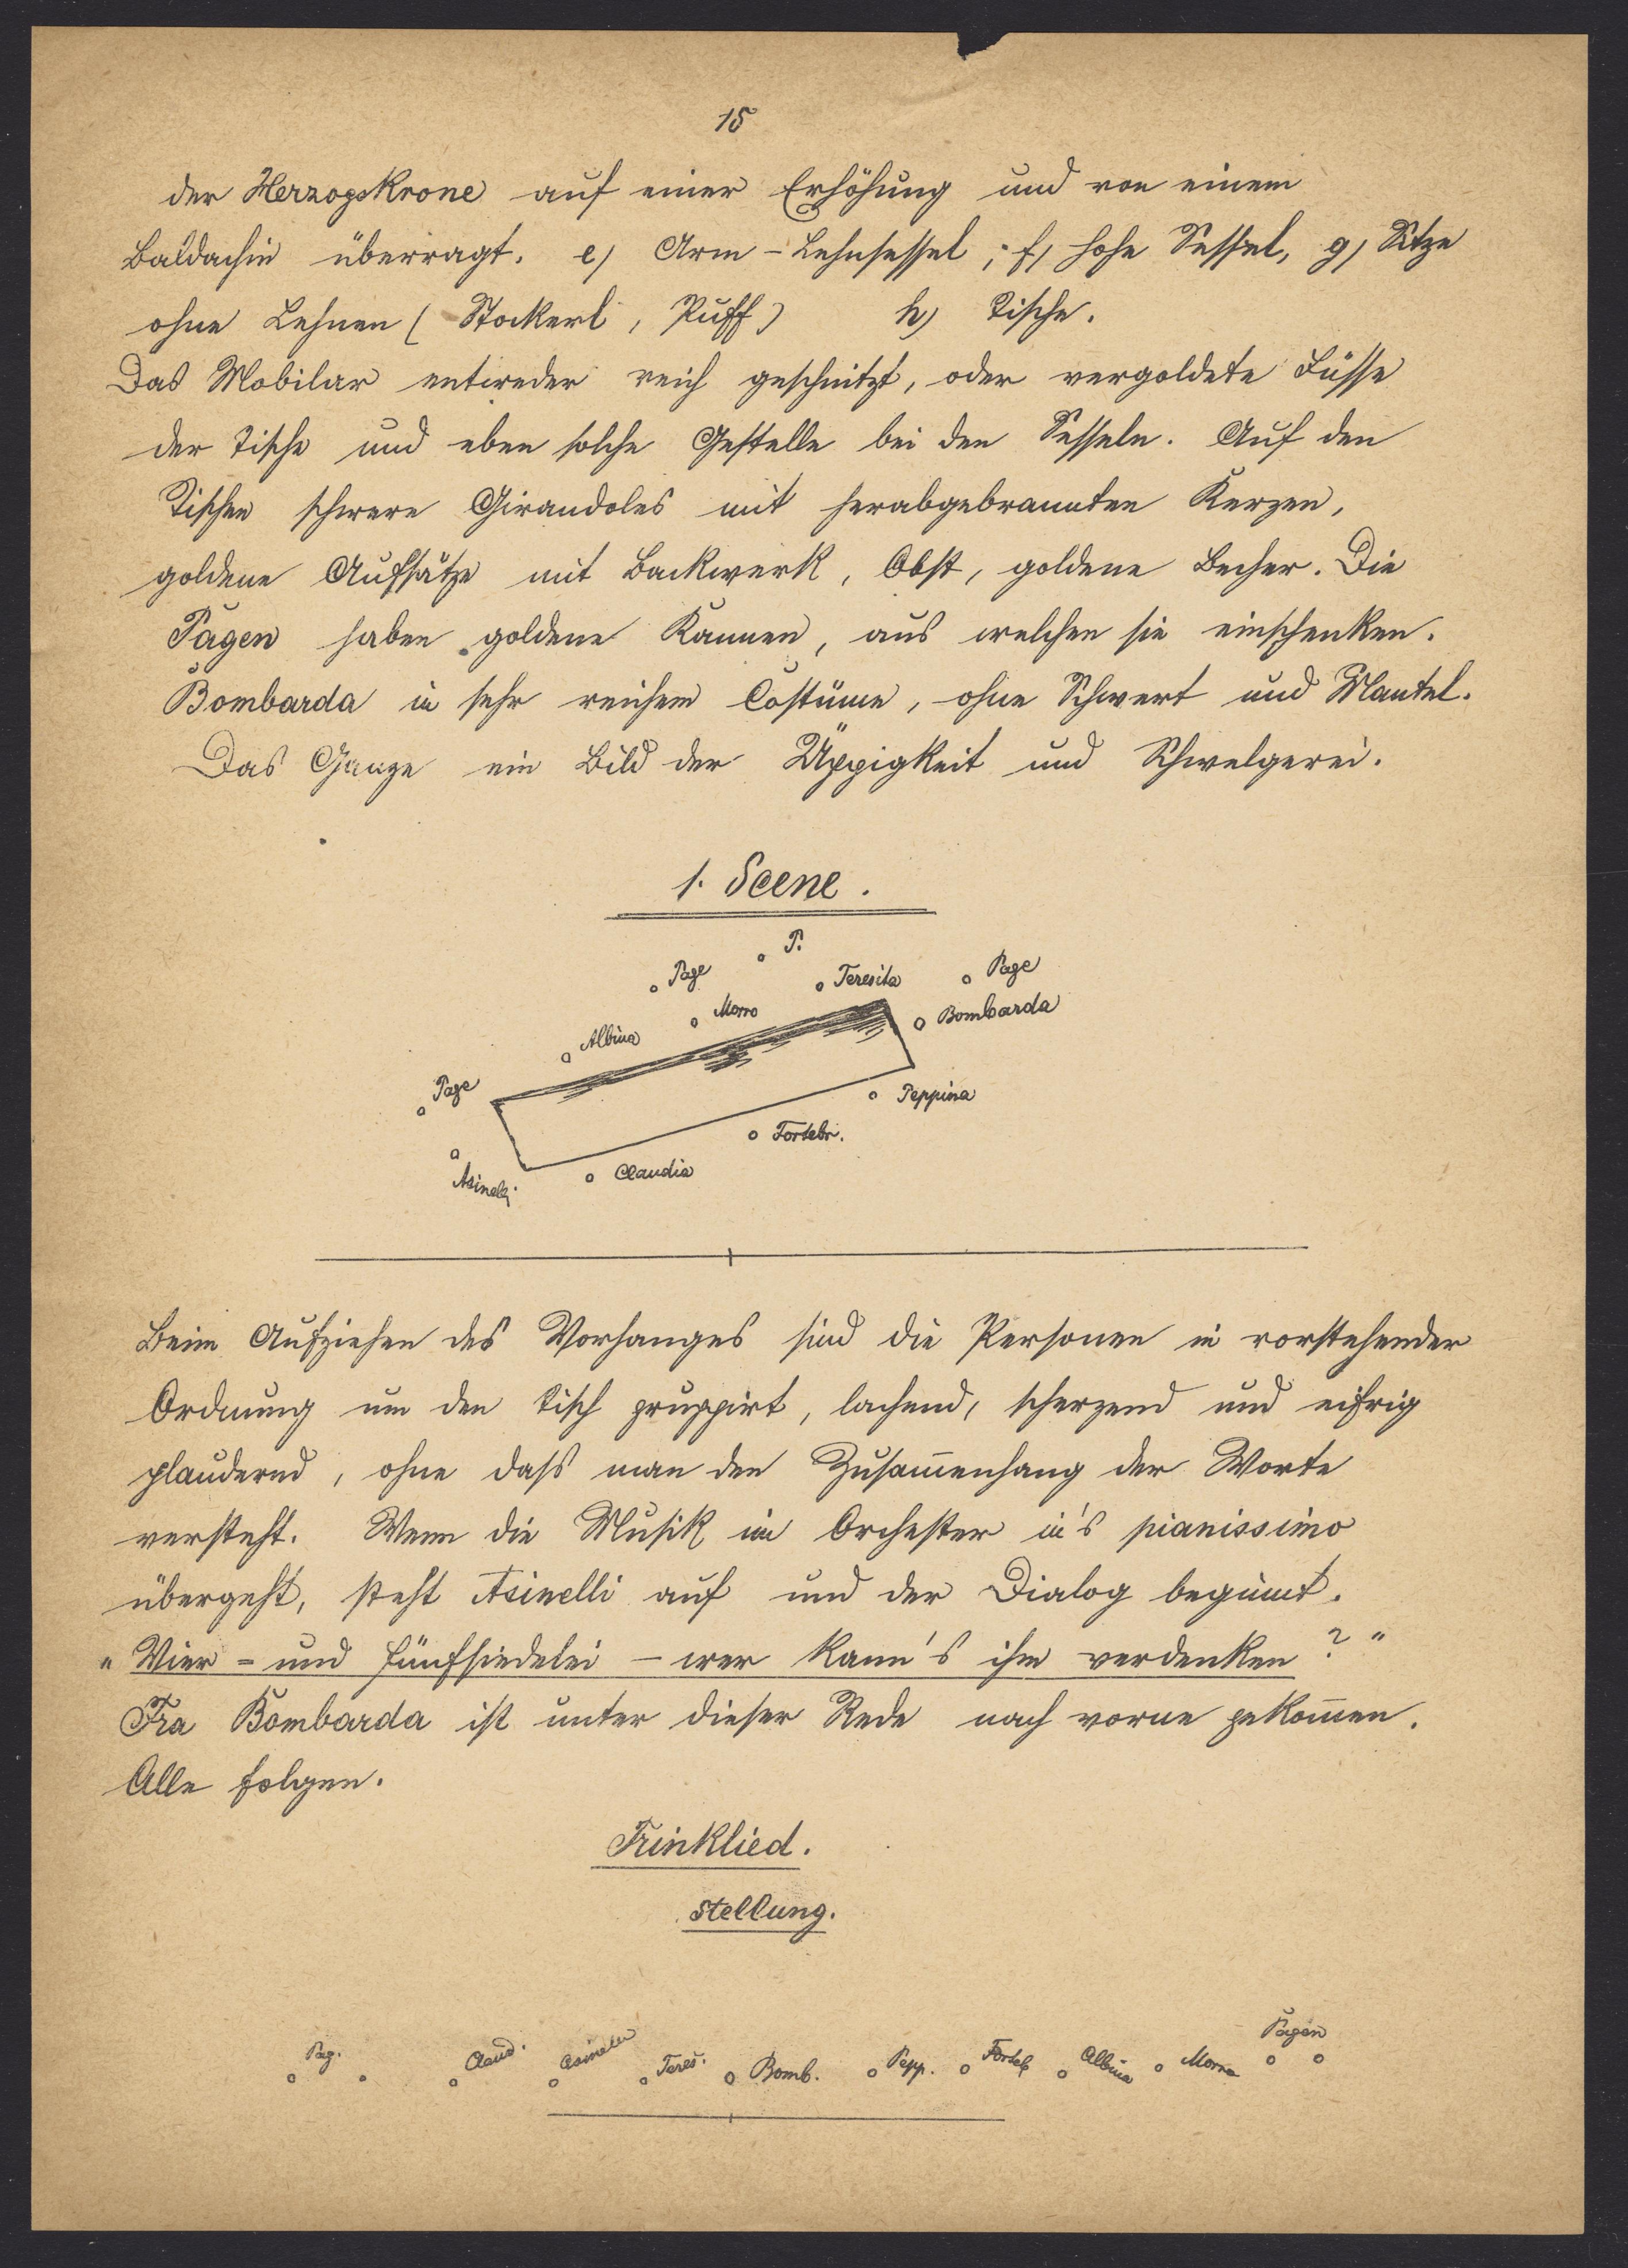 15
der Herzogskrone auf einer Erhöhung und von einem
Baldachin überragt. e) Arm-Lehnsessel; f) hohe Sessel, g) Sitze
ohne Lehnen (Stockerl, Puff) h) Tische.
Das Mobilar entweder reich geschnitzt, oder vergoldete Füsse
der Tische und eben solche Gestelle bei den Sesseln. Auf den
Tischen schwere Girandoles mit herabgebrannten Kerzen,
goldene Aufsätze mit Backwerk, Obst, goldene Becher. Die
Pagen haben goldene Kannen, aus welchen sie einschenken.
Bombarda in sehr reichem Costüme, ohne Schwert und Mantel.
Das Ganze ein Bild der Üppigkeit und Schwelgerei.
1. Scene.
P.
Page Teresita Page
Morro Bombarda
Albina
Page
Peppina
Fortebr.
Asinelli Claudia
Beim Aufziehen des Vorhanges sind die Personen in vorstehender
Ordnung um den Tisch gruppirt, lachend, scherzend und eifrig
plaudernd, ohne dass man den Zusam̅enhang der Worte
versteht. Wenn die Musik im Orchester in's pianissimo
übergeht, steht Asinelli auf und der Dialog begin̅t.
"Vier- und Fünfsiedelei – wer kann's ihm verdenken?"
Fra Bombarda ist unter dieser Rede nach vorne gekom̅en.
Alle folgen.
Trinklied.
Stellung.
Pag. Claud. Asinelli Teres. Bomb. Pepp. Forteb Albina Morro Pagen